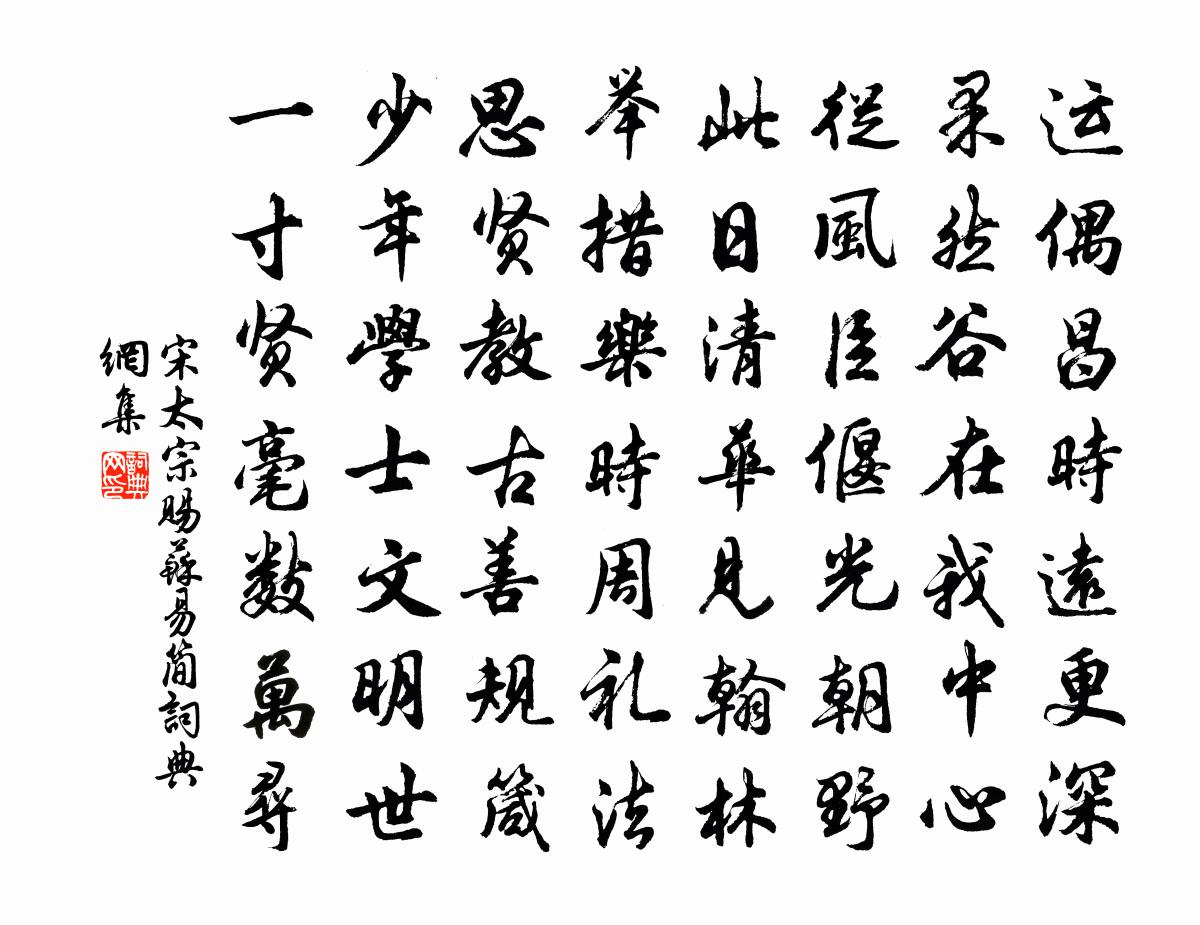 运偶昌時遠更深
柔然谷在我中心
從風臣偃光朝野
此日清華見翰林
举措樂時周礼法
思贤教古善規箴
少年學士文明世
一寸贤毫數萬尋
宋太宗賜蘇易简詞典
網集
詞典網印